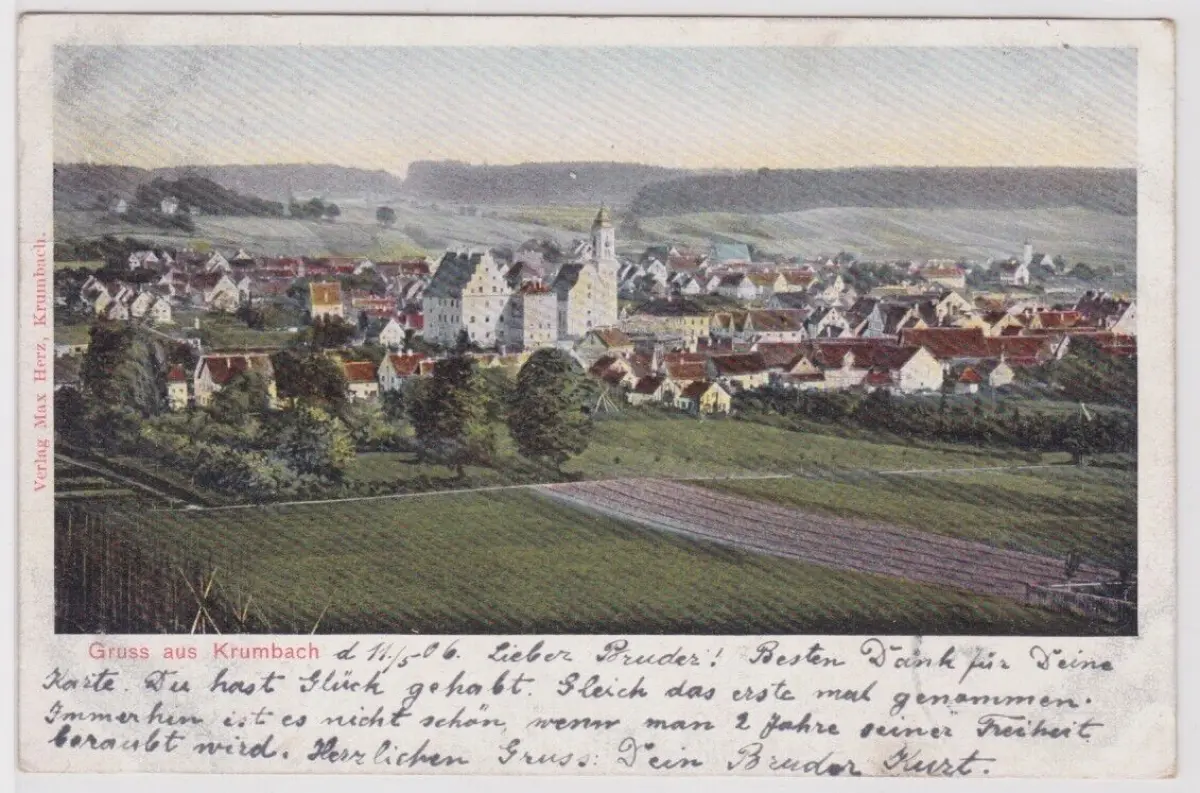 Verlag Max Herz, Krumbach.
Gruss aus Krumbach d 11./5 06. Lieber Bruder! Besten Dank für Deine
Karte. Du hast Glück gehabt. Gleich das erste mal genommen.
Immerhin ist es nicht schön, wenn man 2 Jahre seiner Freiheit
beraubt wird. Herzlichen Gruss: Dein Bruder Kurt.